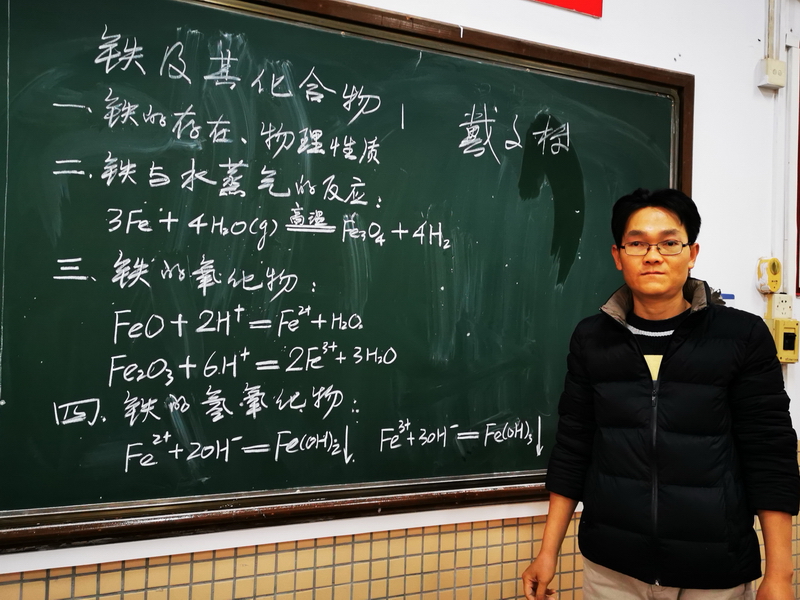 铁及其化合物
一、铁的存在、物理性质
戴文树
二、铁与水蒸气的反应:
3Fe + 4H₂O(g) 高温 Fe₃O₄ + 4H₂
三、铁的氧化物:
FeO + 2H⁺ = Fe²⁺ + H₂O
Fe₂O₃ + 6H⁺ = 2Fe³⁺ + 3H₂O
四、铁的氢氧化物:
Fe²⁺ + 2OH⁻ = Fe(OH)₂↓ Fe³⁺ + 3OH⁻ = Fe(OH)₃↓